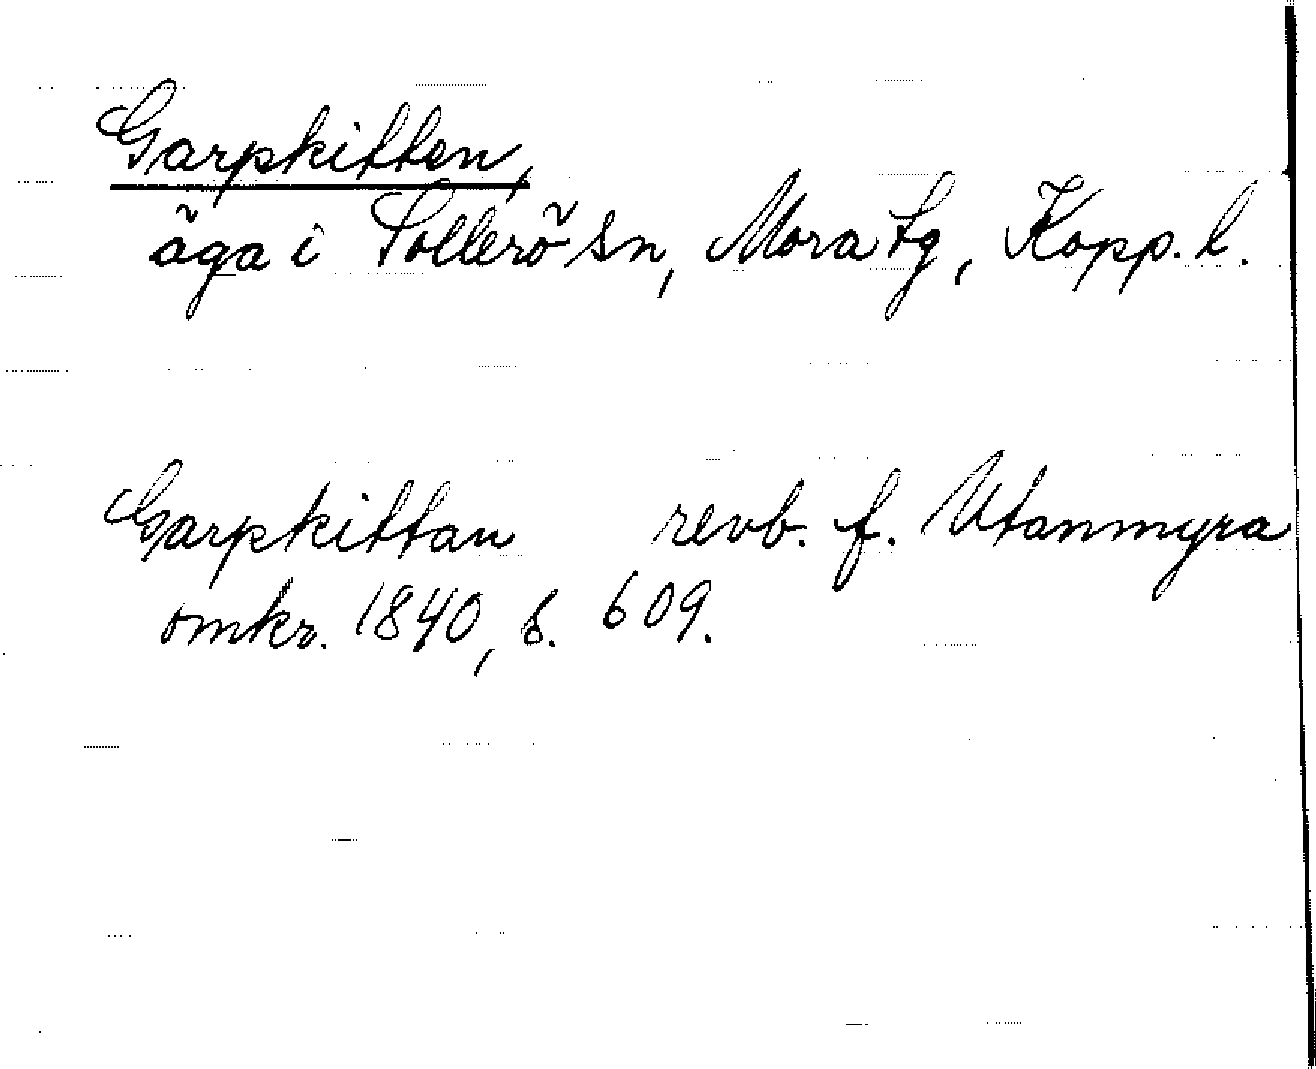 Garpkitten,
äga i Sollerö sn, Mora tg, Kopp. l.
Garpkittan revb. f. Utanmyra
omkr. 1840, s. 609.